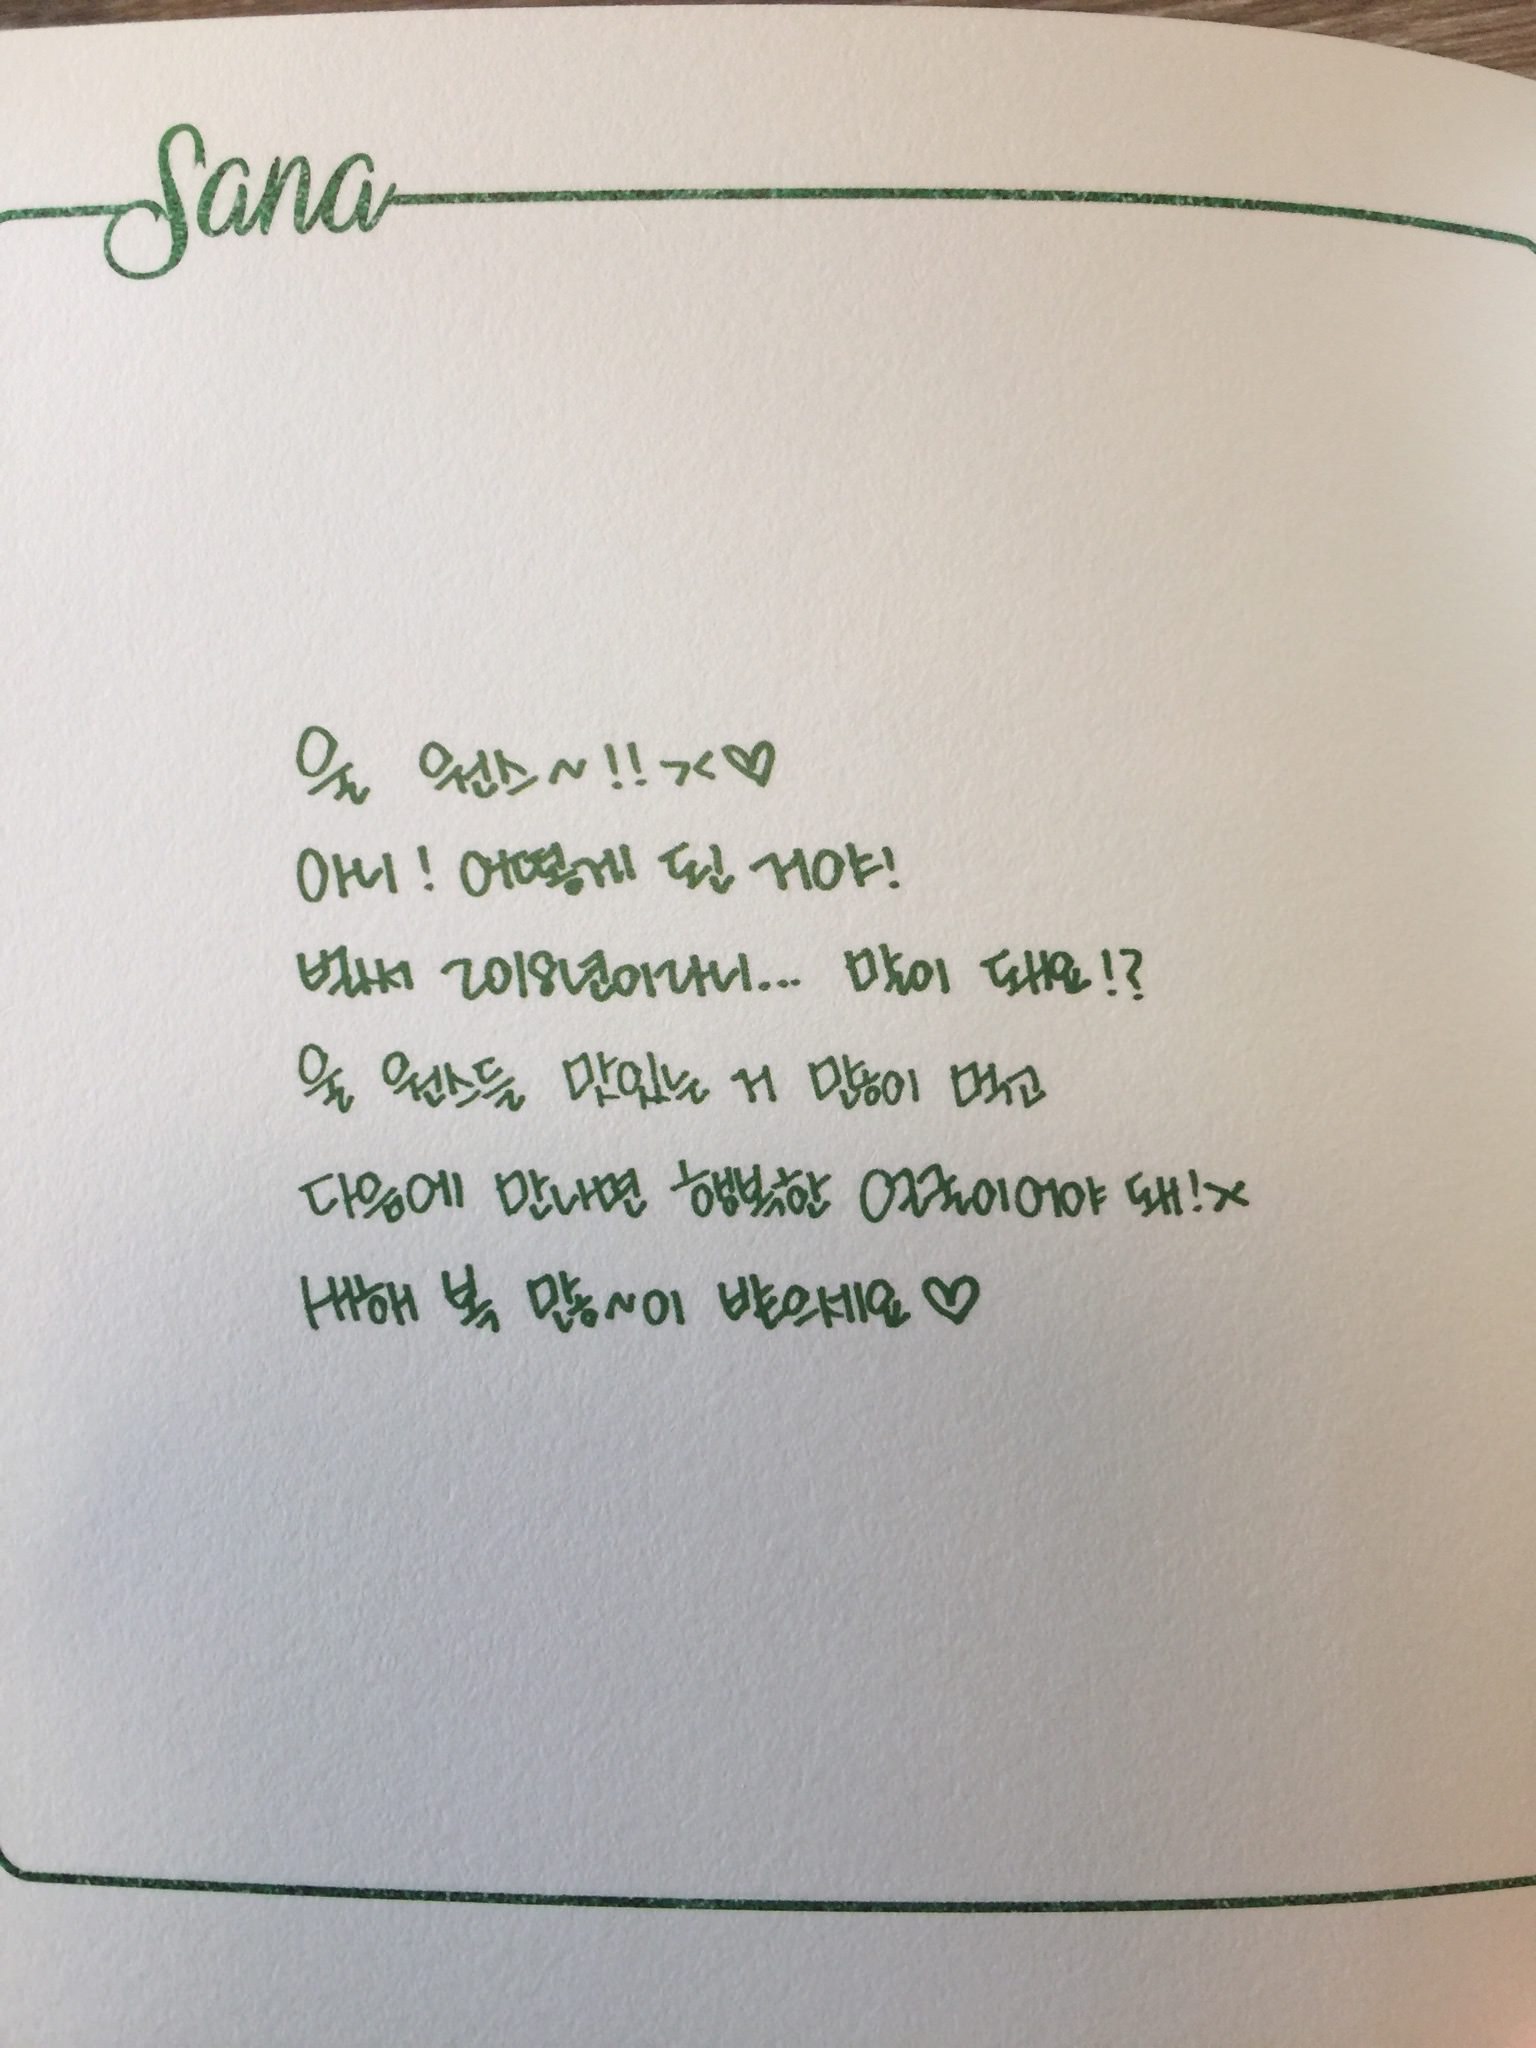 Sana
울 원스~!!><♡
아니! 어떻게 된 거야!
벌써 2018년이라니... 말이 돼요!?
울 원스들 맛있는 거 많이 먹고
다음에 만나면 행복한 얼굴이어야 돼!×
새해 복 많~이 받으세요♡